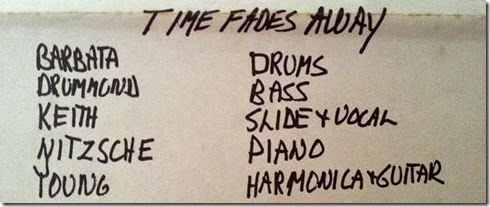 TIME FADES AWAY
BARBATA DRUMS
DRUMMOND BASS
KEITH SLIDE & VOCAL
NITZSCHE PIANO
YOUNG HARMONICA & GUITAR